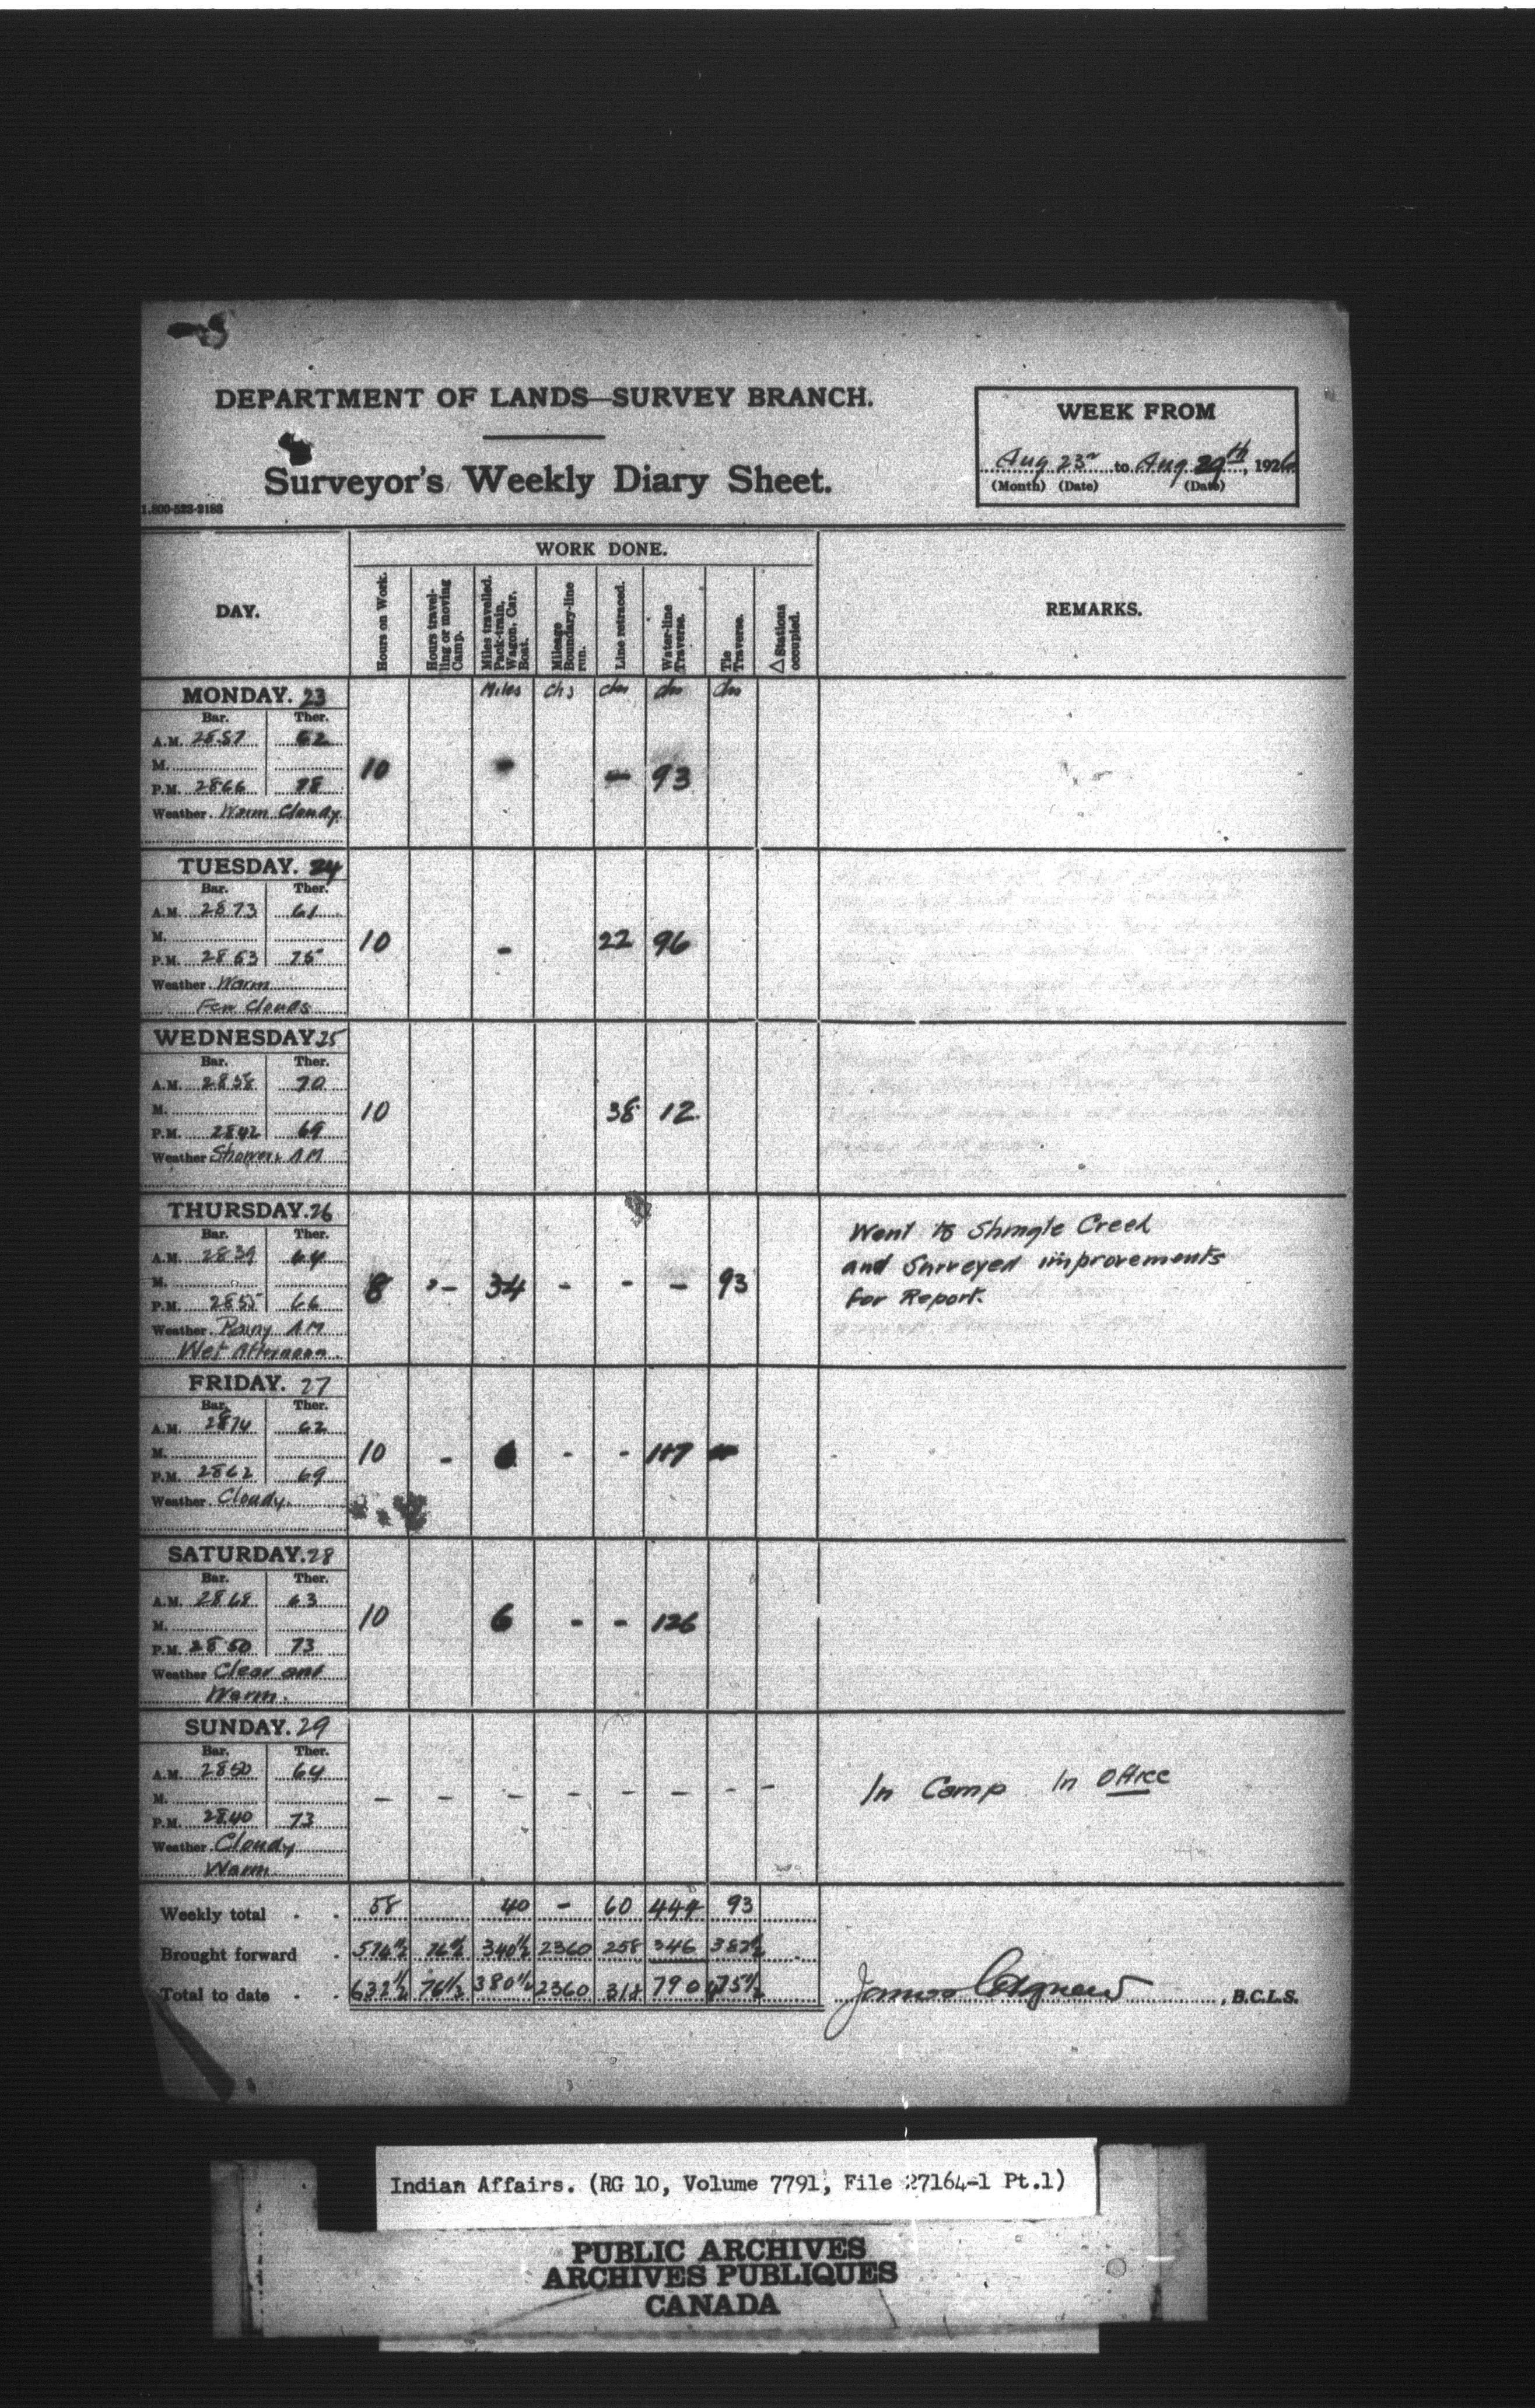 DEPARTMENT OF LANDS—SURVEY BRANCH.
Surveyor's Weekly Diary Sheet.
WEEK FROM
Aug 23rd to Aug 29th, 1926
(Month) (Date) (Date)
DAY.
WORK DONE.
REMARKS.
Hours on Work.
Hours travel-
ling or moving
Camp.
Miles travelled.
Pack-train,
Wagon, Car,
Boat.
Mileage
Boundary-line
run.
Line retraced.
Water-line
Traverse.
Tie
Traverse.
△ Stations
occupied.
Miles Chs chs chs chs
MONDAY. 23
Bar. Ther.
A.M. 2857 62
M.
P.M. 2866 78
Weather Warm Cloudy
10 - 93
TUESDAY. 24
Bar. Ther.
A.M. 2873 61
M.
P.M. 2853 75
Weather Warm
Few Clouds
10 - 22 96
WEDNESDAY 25
Bar. Ther.
A.M. 2838 70
M.
P.M. 2842 69
Weather Showers AM
10 38 12
THURSDAY. 26
Bar. Ther.
A.M. 2839 64
M.
P.M. 2855 66
Weather Rainy AM
Wet Afternoon.
8 - 34 - - - 93
Went to Shingle Creek
and Surveyed improvements
for Report.
FRIDAY. 27
Bar. Ther.
A.M. 2874 62
M.
P.M. 2862 69
Weather Cloudy
10 - - - 117
SATURDAY. 28
Bar. Ther.
A.M. 2868 63
M.
P.M. 2850 73
Weather Clear and
Warm.
10 6 - - 126
SUNDAY. 29
Bar. Ther.
A.M. 2850 64
M.
P.M. 2840 73
Weather Cloudy
Warm
- - - - - - - -
In Camp In Office
Weekly total - - 58 40 - 60 444 93
Brought forward - 574½ 76½ 340½ 2360 258 346 382½
Total to date - - 632½ 76½ 380½ 2360 318 790 475½
James Agnew, B.C.L.S.
Indian Affairs. (RG 10, Volume 7791, File 27164-1 Pt.1)
PUBLIC ARCHIVES
ARCHIVES PUBLIQUES
CANADA